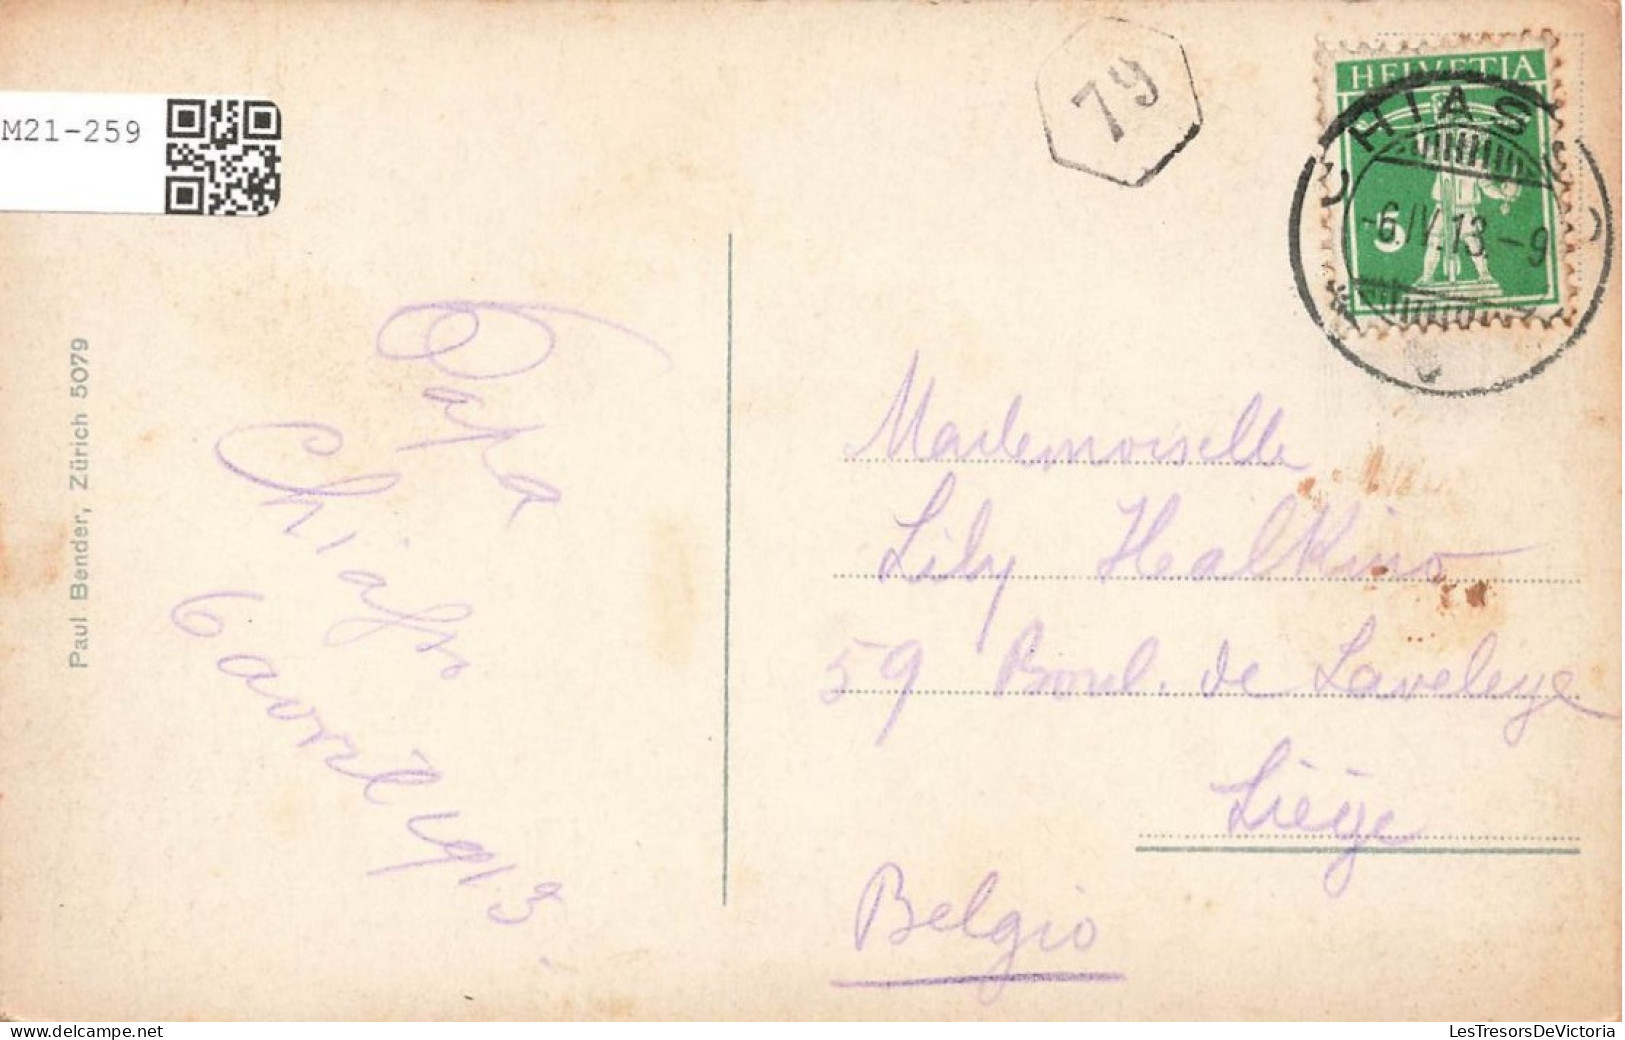 M21-259
79
HELVETIA
CHIASSO
5
-6.IV.13.-9
Paul Bender, Zürich 5079
Papa
Chiasso
6 avril 1913.
Mademoiselle
Lily Healkino
59 Boul. de Laveleye
Liège
Belgio
LesTresorsDeVictoria